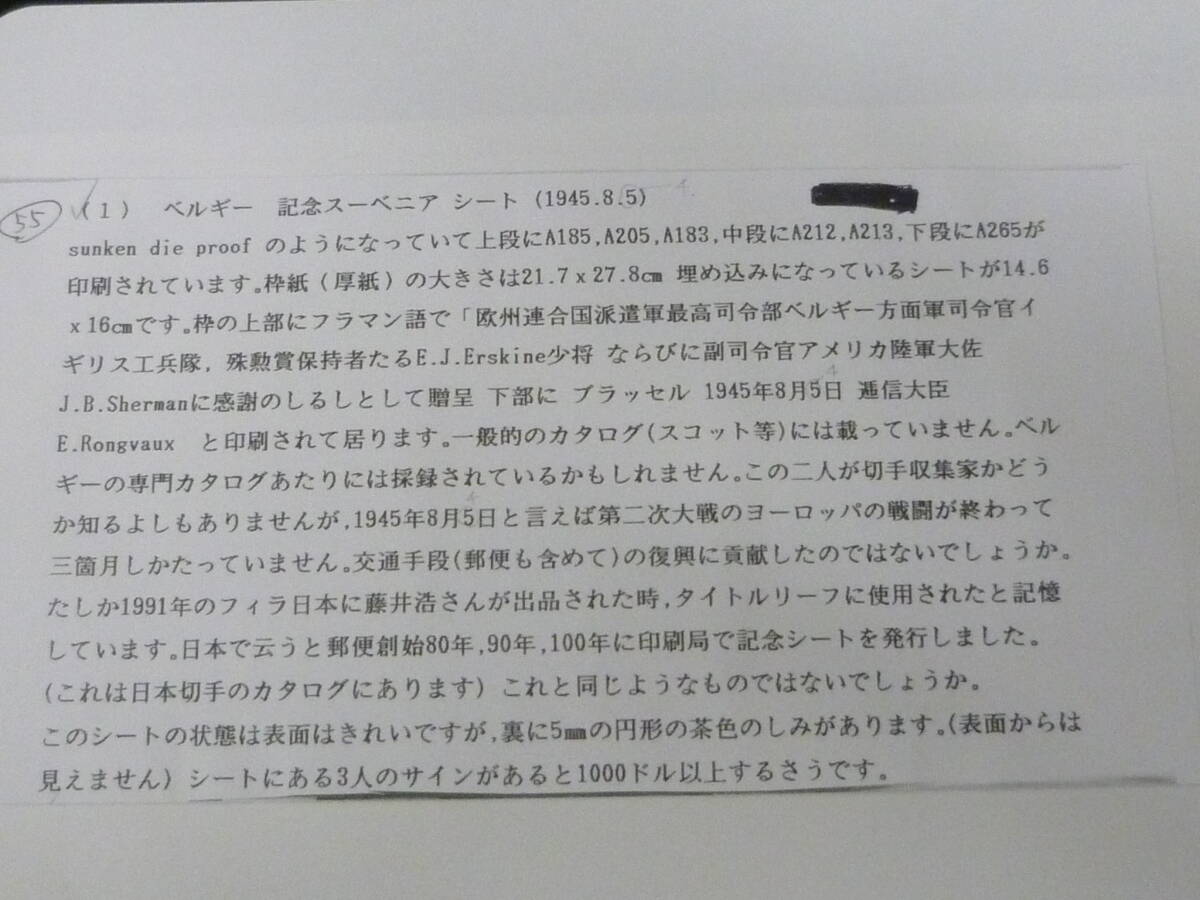 55 (1) ベルギー 記念スーベニア シート (1945.8.5) 4.
sunken die proof のようになっていて上段にA185,A205,A183,中段にA212,A213,下段にA265が
印刷されています。枠紙(厚紙)の大きさは21.7x27.8cm 埋め込みになっているシートが14.6
x16cmです。枠の上部にフラマン語で「欧州連合国派遣軍最高司令部ベルギー方面軍司令官イ
ギリス工兵隊, 殊勲賞保持者たるE.J.Erskine少将 ならびに副司令官アメリカ陸軍大佐
J.B.Shermanに感謝のしるしとして贈呈 下部に ブラッセル 1945年8月5日 逓信大臣 4
E.Rongvaux と印刷されて居ります。一般的のカタログ(スコット等)には載っていません。ベル
ギーの専門カタログあたりには採録されているかもしれません。この二人が切手収集家かどう
か知るよしもありませんが,1945年8月5日と言えば第二次大戦のヨーロッパの戦闘が終わって 4
三箇月しかたっていません。交通手段(郵便も含めて)の復興に貢献したのではないでしょうか。
たしか1991年のフィラ日本に藤井浩さんが出品された時,タイトルリーフに使用されたと記憶
しています。日本で云うと郵便創始80年,90年,100年に印刷局で記念シートを発行しました。
(これは日本切手のカタログにあります) これと同じようなものではないでしょうか。
このシートの状態は表面はきれいですが,裏に5mmの円形の茶色のしみがあります。(表面からは
見えません) シートにある3人のサインがあると1000ドル以上するさうです。